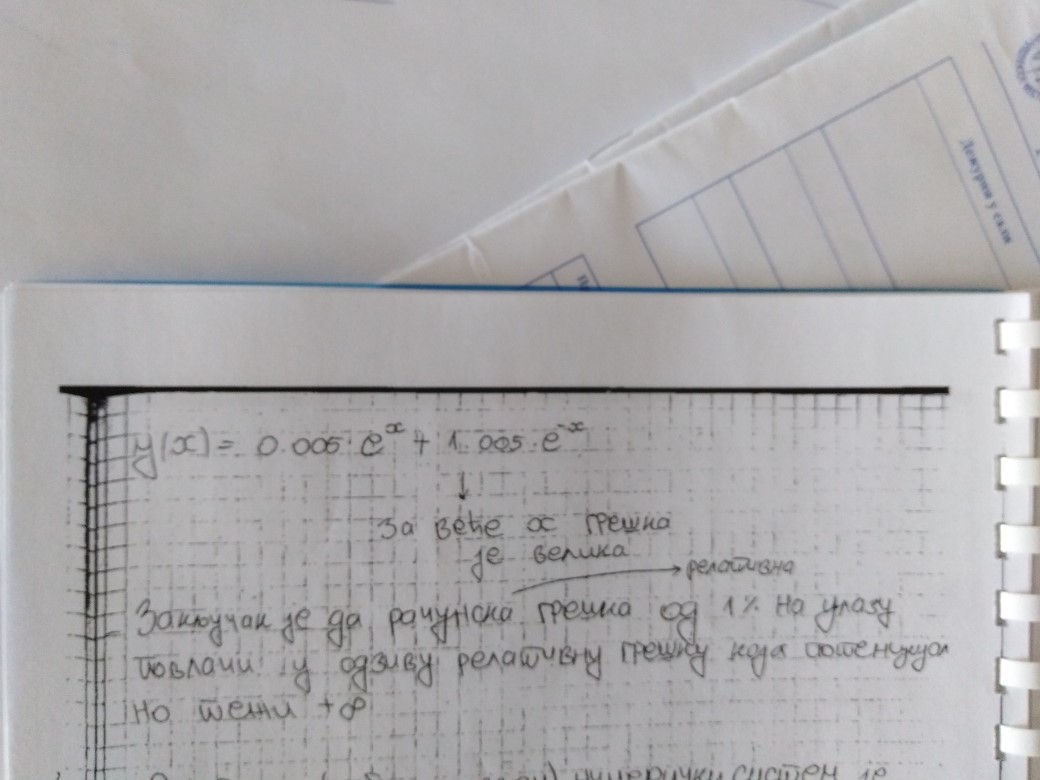 Дежурни у сали
y(x) = 0.005·e^x + 1.005·e^-x
↓
За веће x грешка
је велика
→ релативна
Закључак је да рачунска грешка од 1% на улазу
повлачи у одзиву релативну грешку која потенцијал
но тежи +∞
нумерички систем је